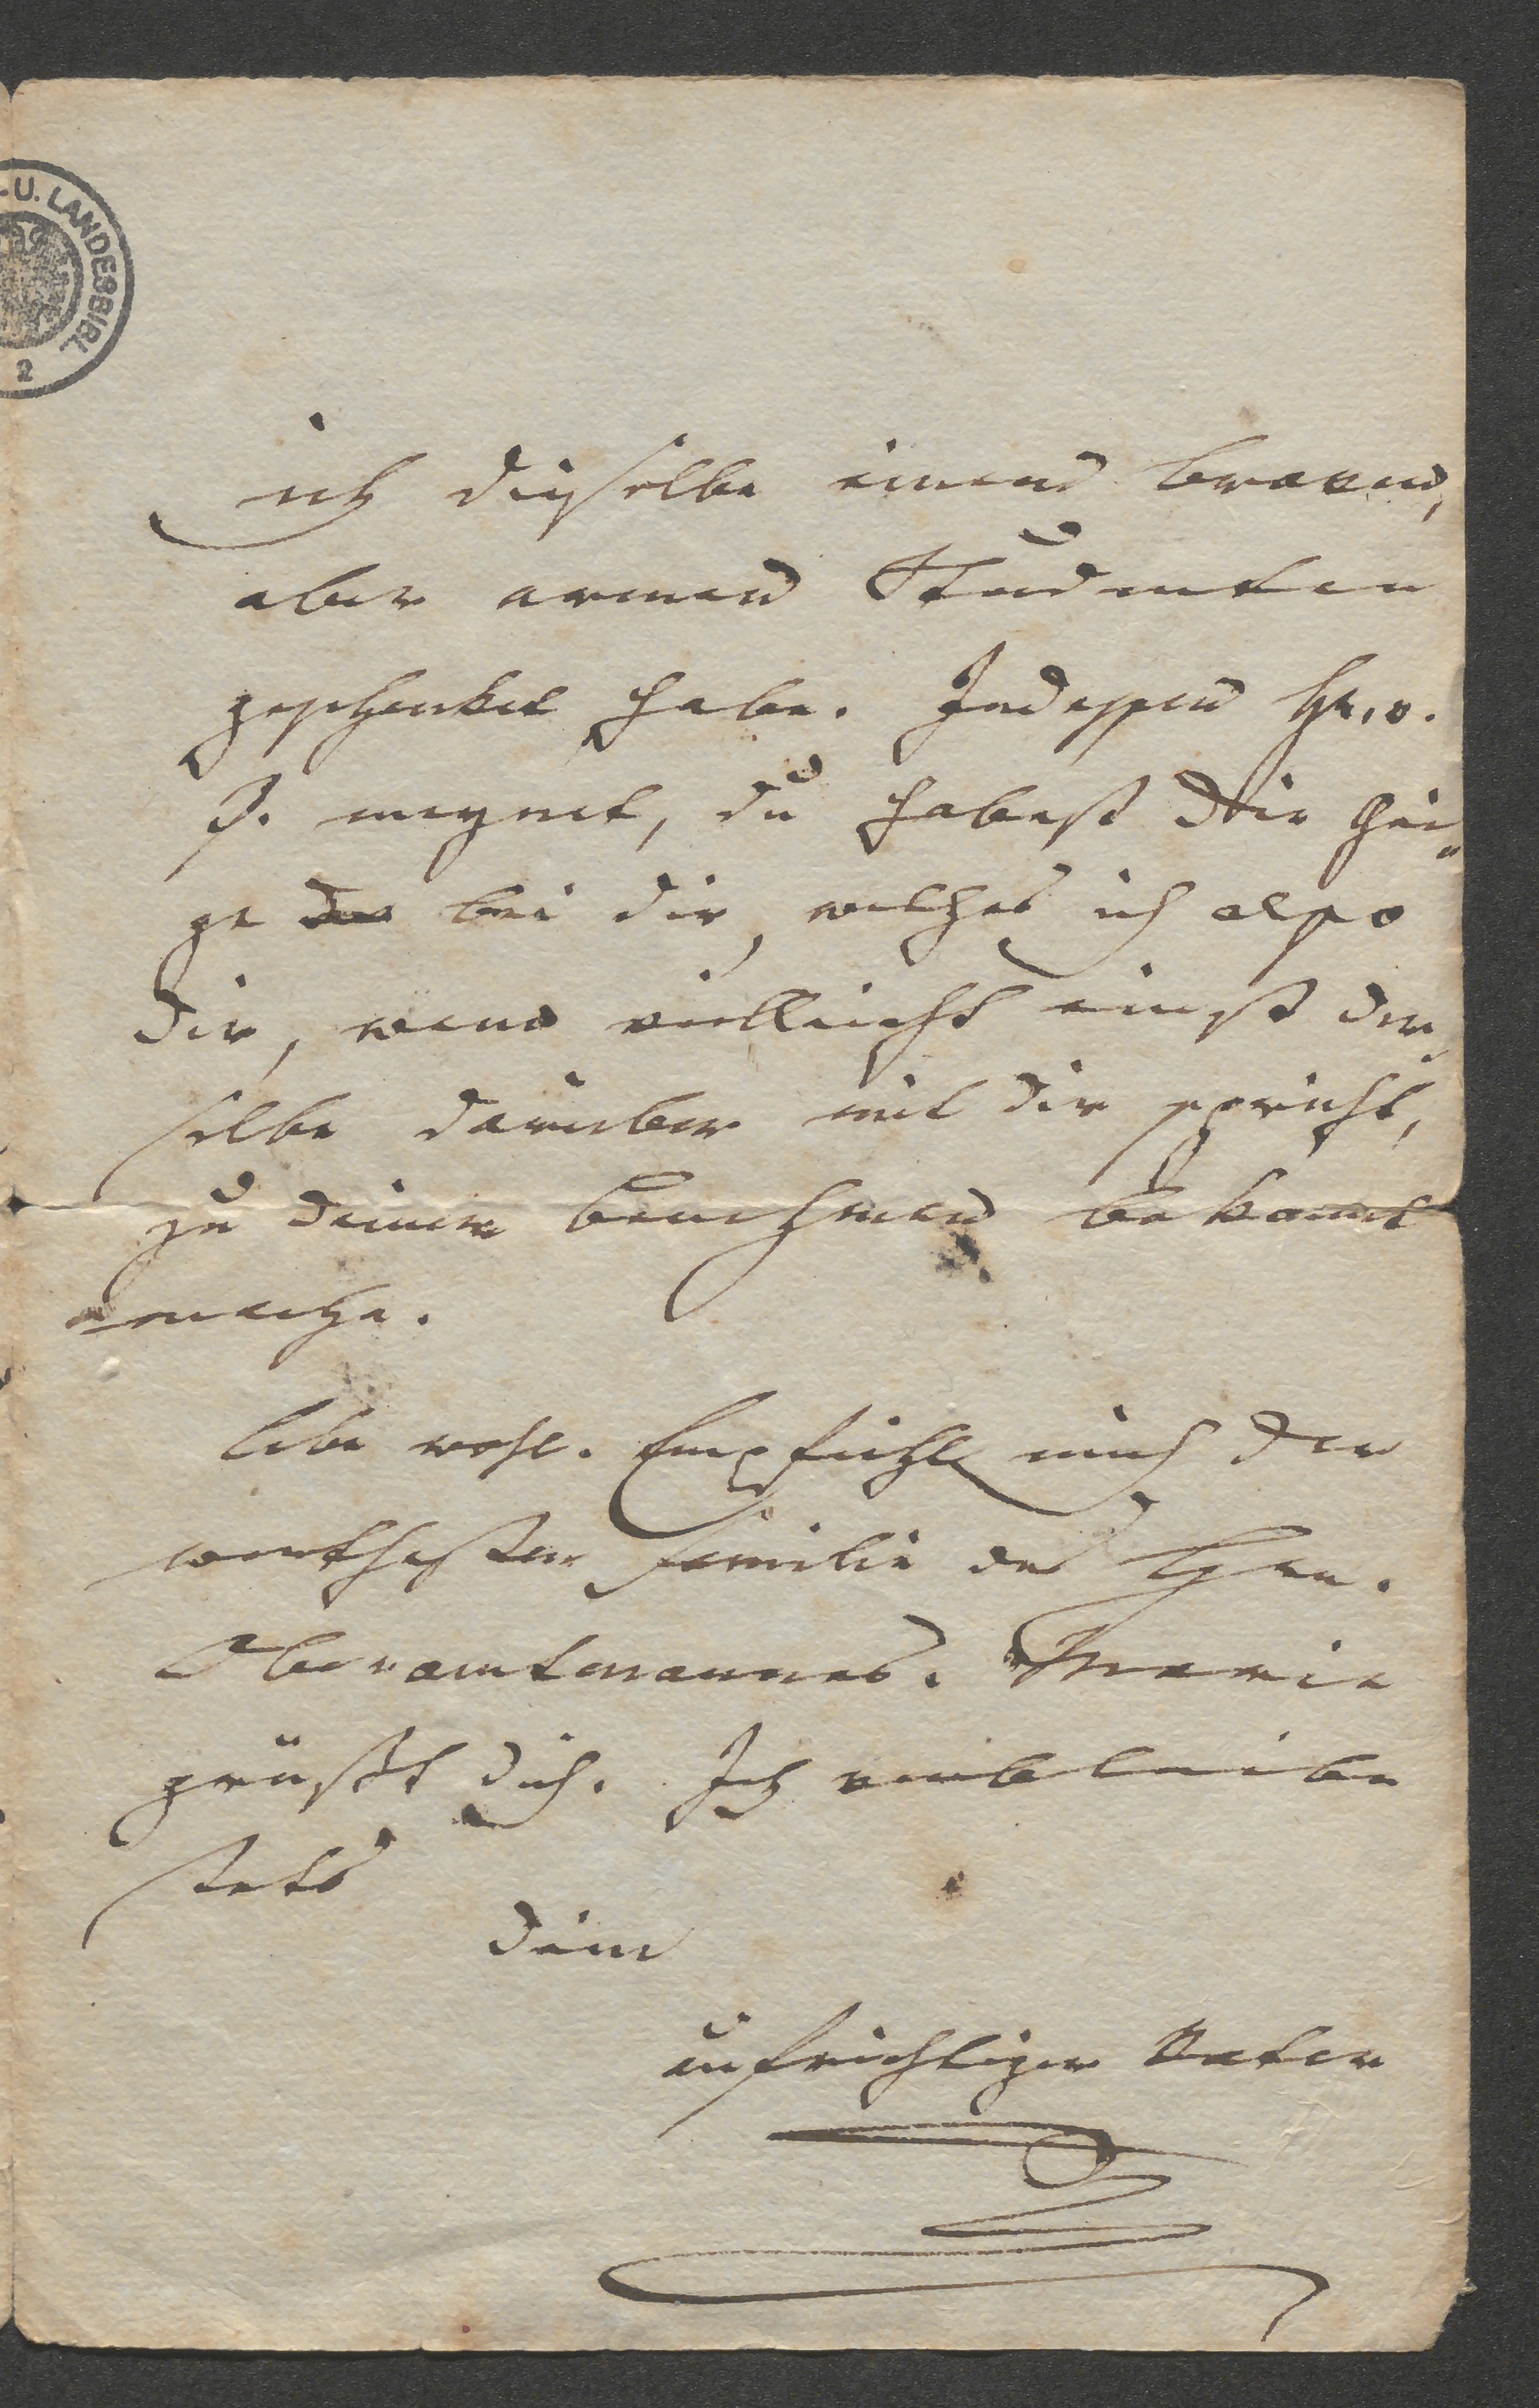 -U. LANDESBIBL
2
ich dieselbe einem braven,
aber armen Studenten
geschenket habe. Indessen Hr. v.
J. meynet, du habest die Gei„
ge bei dir, welches ich also
dir, wenn vielleicht einst der„
selbe darüber mit dir spricht,
zu deinem benehmen bekannt
mache.
Lebe wohl. Empfiehl mich der
werthesten Familie des Hrn.
Oberamtmannes. Marie
grüßt dich. Ich verbleibe
stets
dein
aufrichtiger Vater